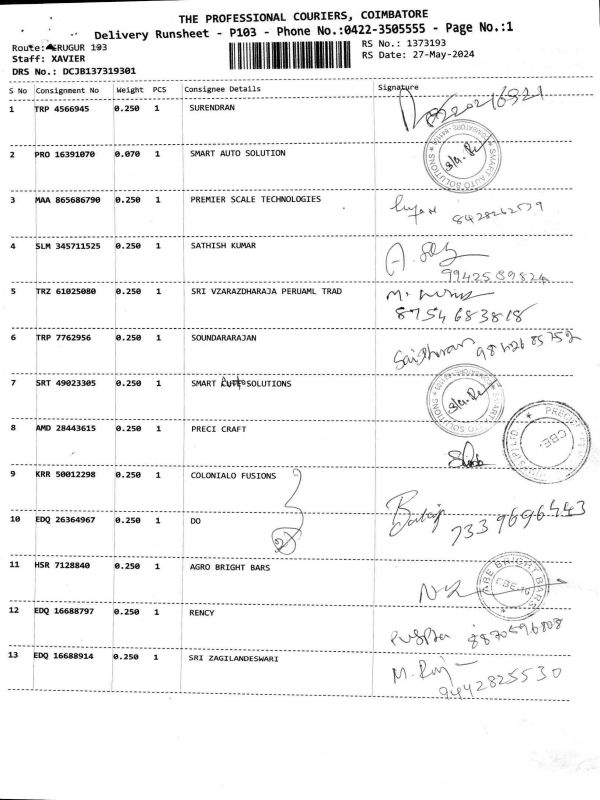 THE PROFESSIONAL COURIERS, COIMBATORE
Delivery Runsheet - P103 - Phone No.:0422-3505555 - Page No.:1
Route: IRUGUR 103
RS No.: 1373193
Staff: XAVIER
RS Date: 27-May-2024
DRS No.: DCJB137319301
S No Consignment No Weight PCS Consignee Details Signature
1 TRP 4566945 0.250 1 SURENDRAN
2 PRO 16391070 0.070 1 SMART AUTO SOLUTION
SMART AUTO SOLUTIONS
3 MAA 865686790 0.250 1 PREMIER SCALE TECHNOLOGIES
4 SLM 345711525 0.250 1 SATHISH KUMAR
5 TRZ 61025080 0.250 1 SRI VZARAZDHARAJA PERUAML TRAD
8754683818
6 TRP 7762956 0.250 1 SOUNDARARAJAN
7 SRT 49023305 0.250 1 SMART Auto SOLUTIONS
8 AMD 28443615 0.250 1 PRECI CRAFT
CBE-
9 KRR 50012298 0.250 1 COLONIALO FUSIONS
10 EDQ 26364967 0.250 1 DO
2
7339696443
11 HSR 7128840 0.250 1 AGRO BRIGHT BARS
BRIGHT BARS
12 EDQ 16688797 0.250 1 RENCY
Pushpa 8870596808
13 EDQ 16688914 0.250 1 SRI ZAGILANDESWARI
M. Raj
9442825530